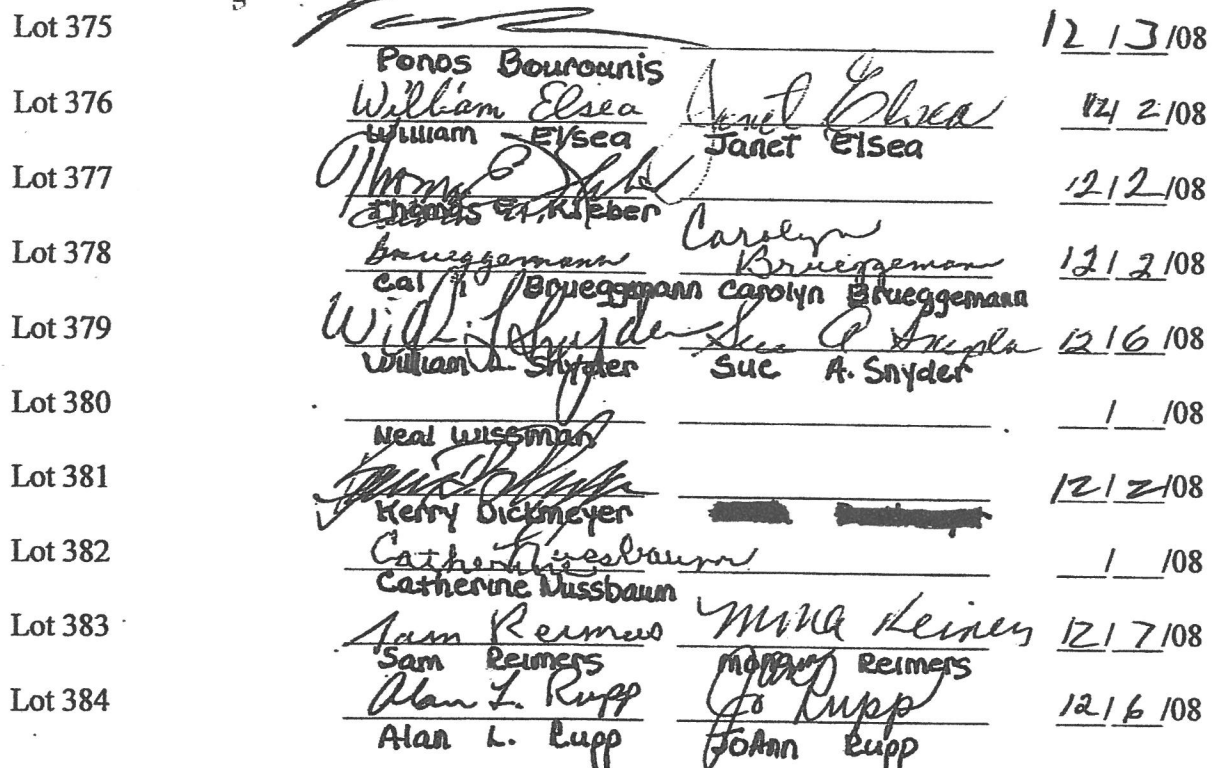 Lot 375 12/3/08
Ponos Bouroounis
Lot 376 William Elsea Janet Elsea 12/2/08
William Elsea Janet Elsea
Lot 377 Thomas E 12/2/08
Thomas E. Kleber
Lot 378 Brueggemann Carolyn Brueggemann 12/2/08
Cal Brueggemann Carolyn Brueggemann
Lot 379 Will L Snyder Sue A Snyder 12/6/08
William L. Snyder Sue A. Snyder
Lot 380 / /08
Neal Wissman
Lot 381 12/2/08
Kerry Dickmeyer
Lot 382 Catherine Nussbaum / /08
Catherine Nussbaum
Lot 383 Sam Reimers Mina Reimers 12/7/08
Sam Reimers Reimers
Lot 384 Alan L. Rupp Jo Rupp 12/6/08
Alan L. Rupp JoAnn Rupp